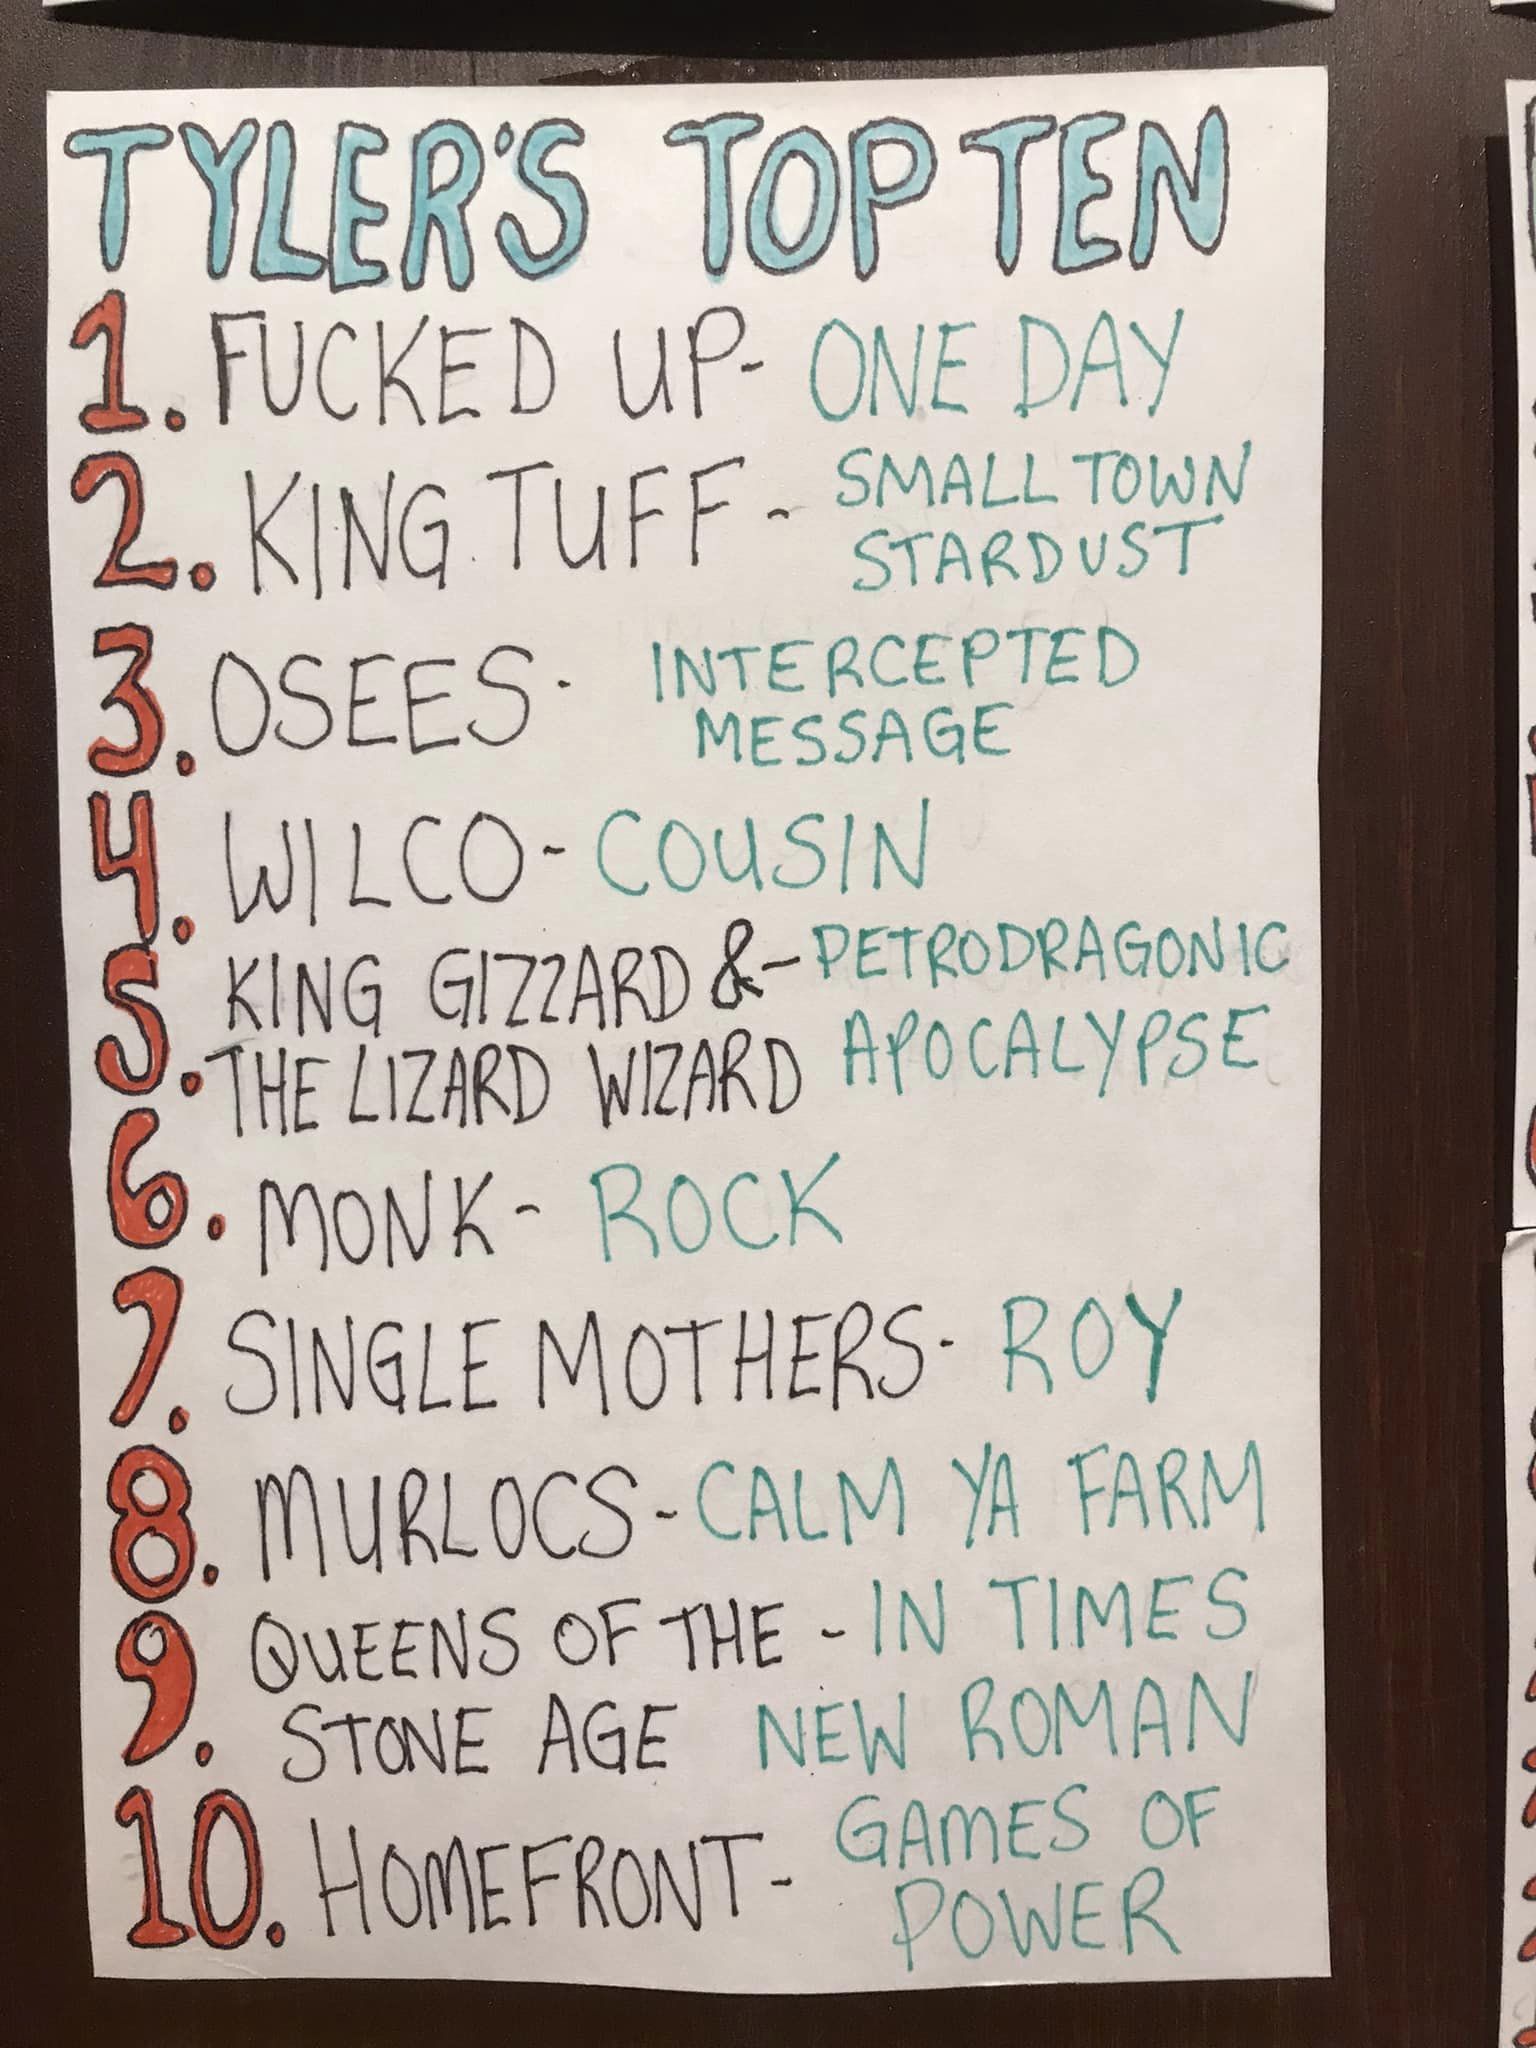 TYLER'S TOP TEN
1. FUCKED UP- ONE DAY
2. KING TUFF - SMALL TOWN
STARDUST
3. OSEES- INTERCEPTED
MESSAGE
4. WILCO- COUSIN
5. KING GIZZARD &- PETRODRAGONIC
THE LIZARD WIZARD APOCALYPSE
6. MONK- ROCK
7. SINGLE MOTHERS- ROY
8. MURLOCS- CALM YA FARM
9. QUEENS OF THE - IN TIMES
STONE AGE NEW ROMAN
10. HOMEFRONT- GAMES OF
POWER